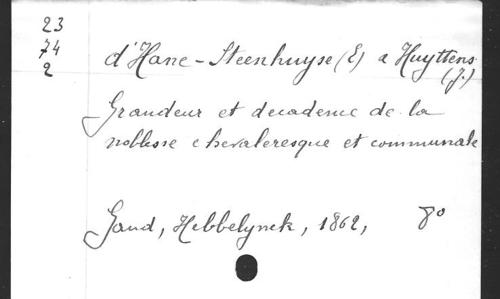 23
74
2
d'Hane-Steenhuyse (E) a Huyttens
(J.)
Grandeur et decadence de la
noblesse chevaleresque et communale
Gand, Hebbelynck, 1862, 8°